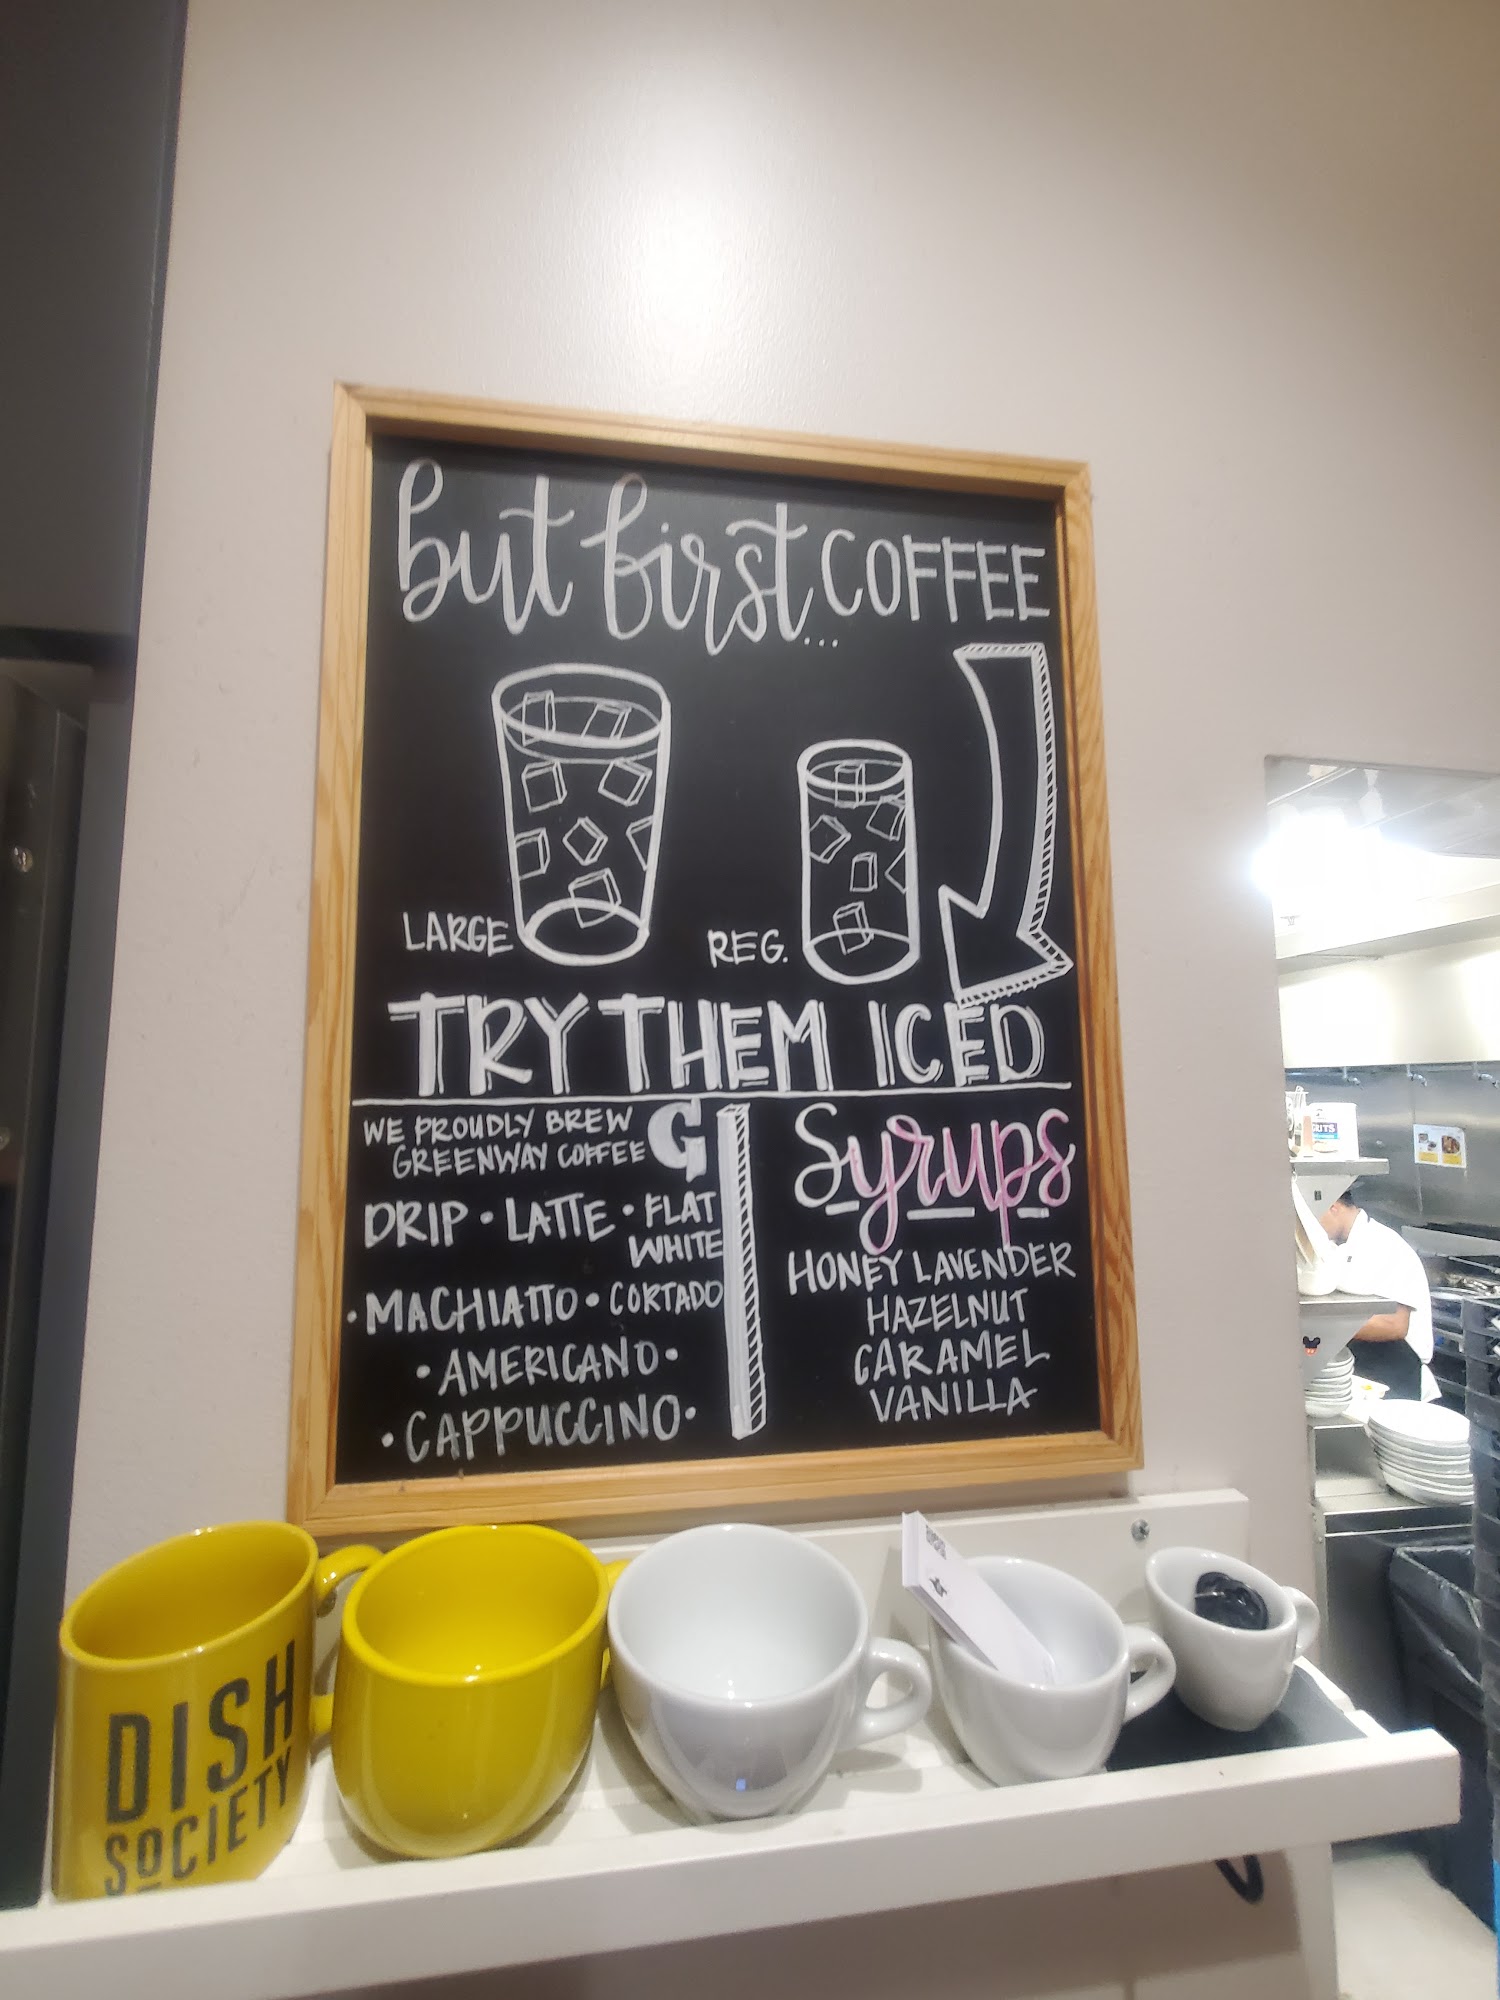 but first... COFFEE
LARGE
REG.
TRY THEM ICED
WE PROUDLY BREW
GREENWAY COFFEE
G
DRIP • LATTE • FLAT
WHITE
• MACHIATTO • CORTADO
• AMERICANO •
• CAPPUCCINO •
Syrups
HONEY LAVENDER
HAZELNUT
CARAMEL
VANILLA
DISH
SOCIETY